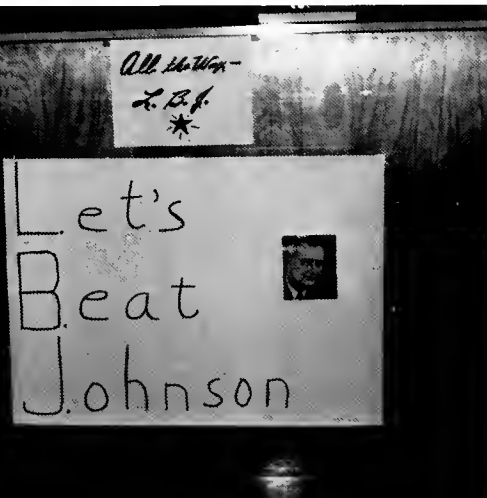 All the Way—
L. B. J.
L.et's
B.eat
J.ohnson